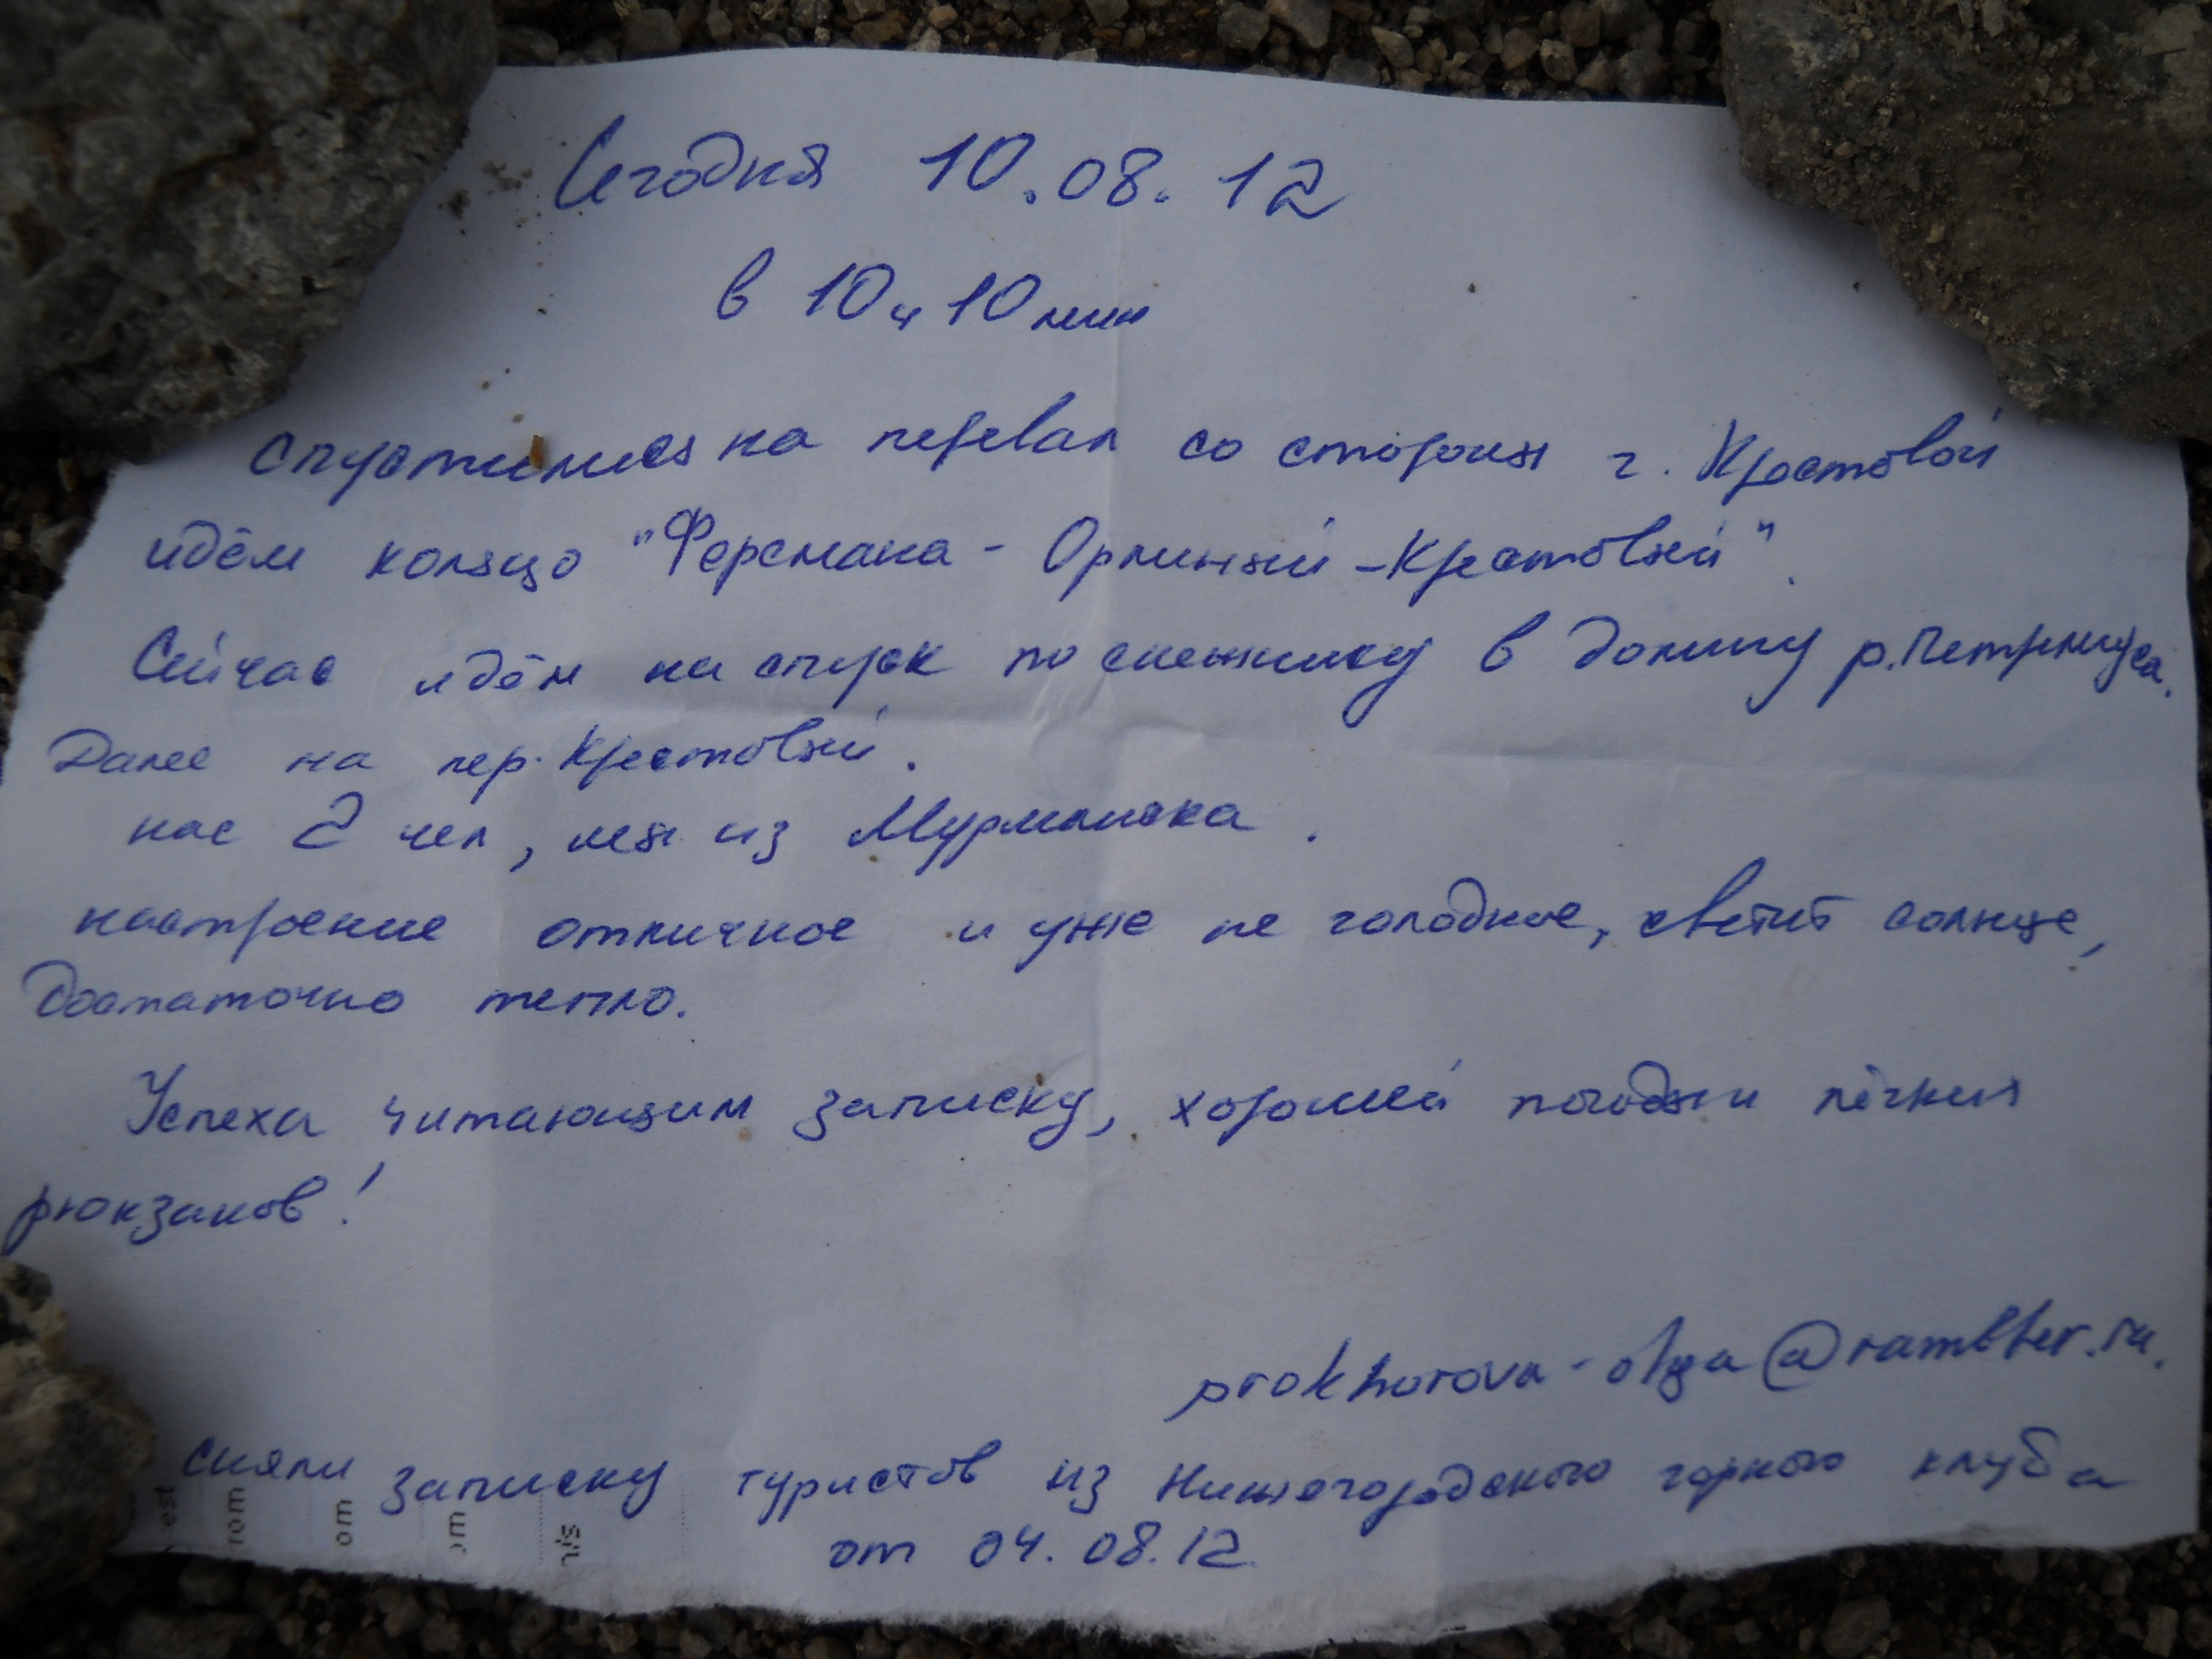 Сегодня 10.08.12
в 10ч 10мин
спустились на перевал со стороны г. Крестовой
идём кольцо "Ферсмана - Орлиный - Крестовый".
Сейчас идём на спуск по снежнику в долину р. Петрелиуса.
Далее на пер. Крестовый.
нас 2 чел, мы из Мурманска.
настроение отличное и уже не голодное, светит солнце,
достаточно тепло.
Успеха читающим записку, хорошей погоды и лёгких
рюкзаков!
prokhorova-olga@rambler.ru.
сняли записку туристов из Нижегородского горного клуба
от 04.08.12
est
rom
om
om
n/s